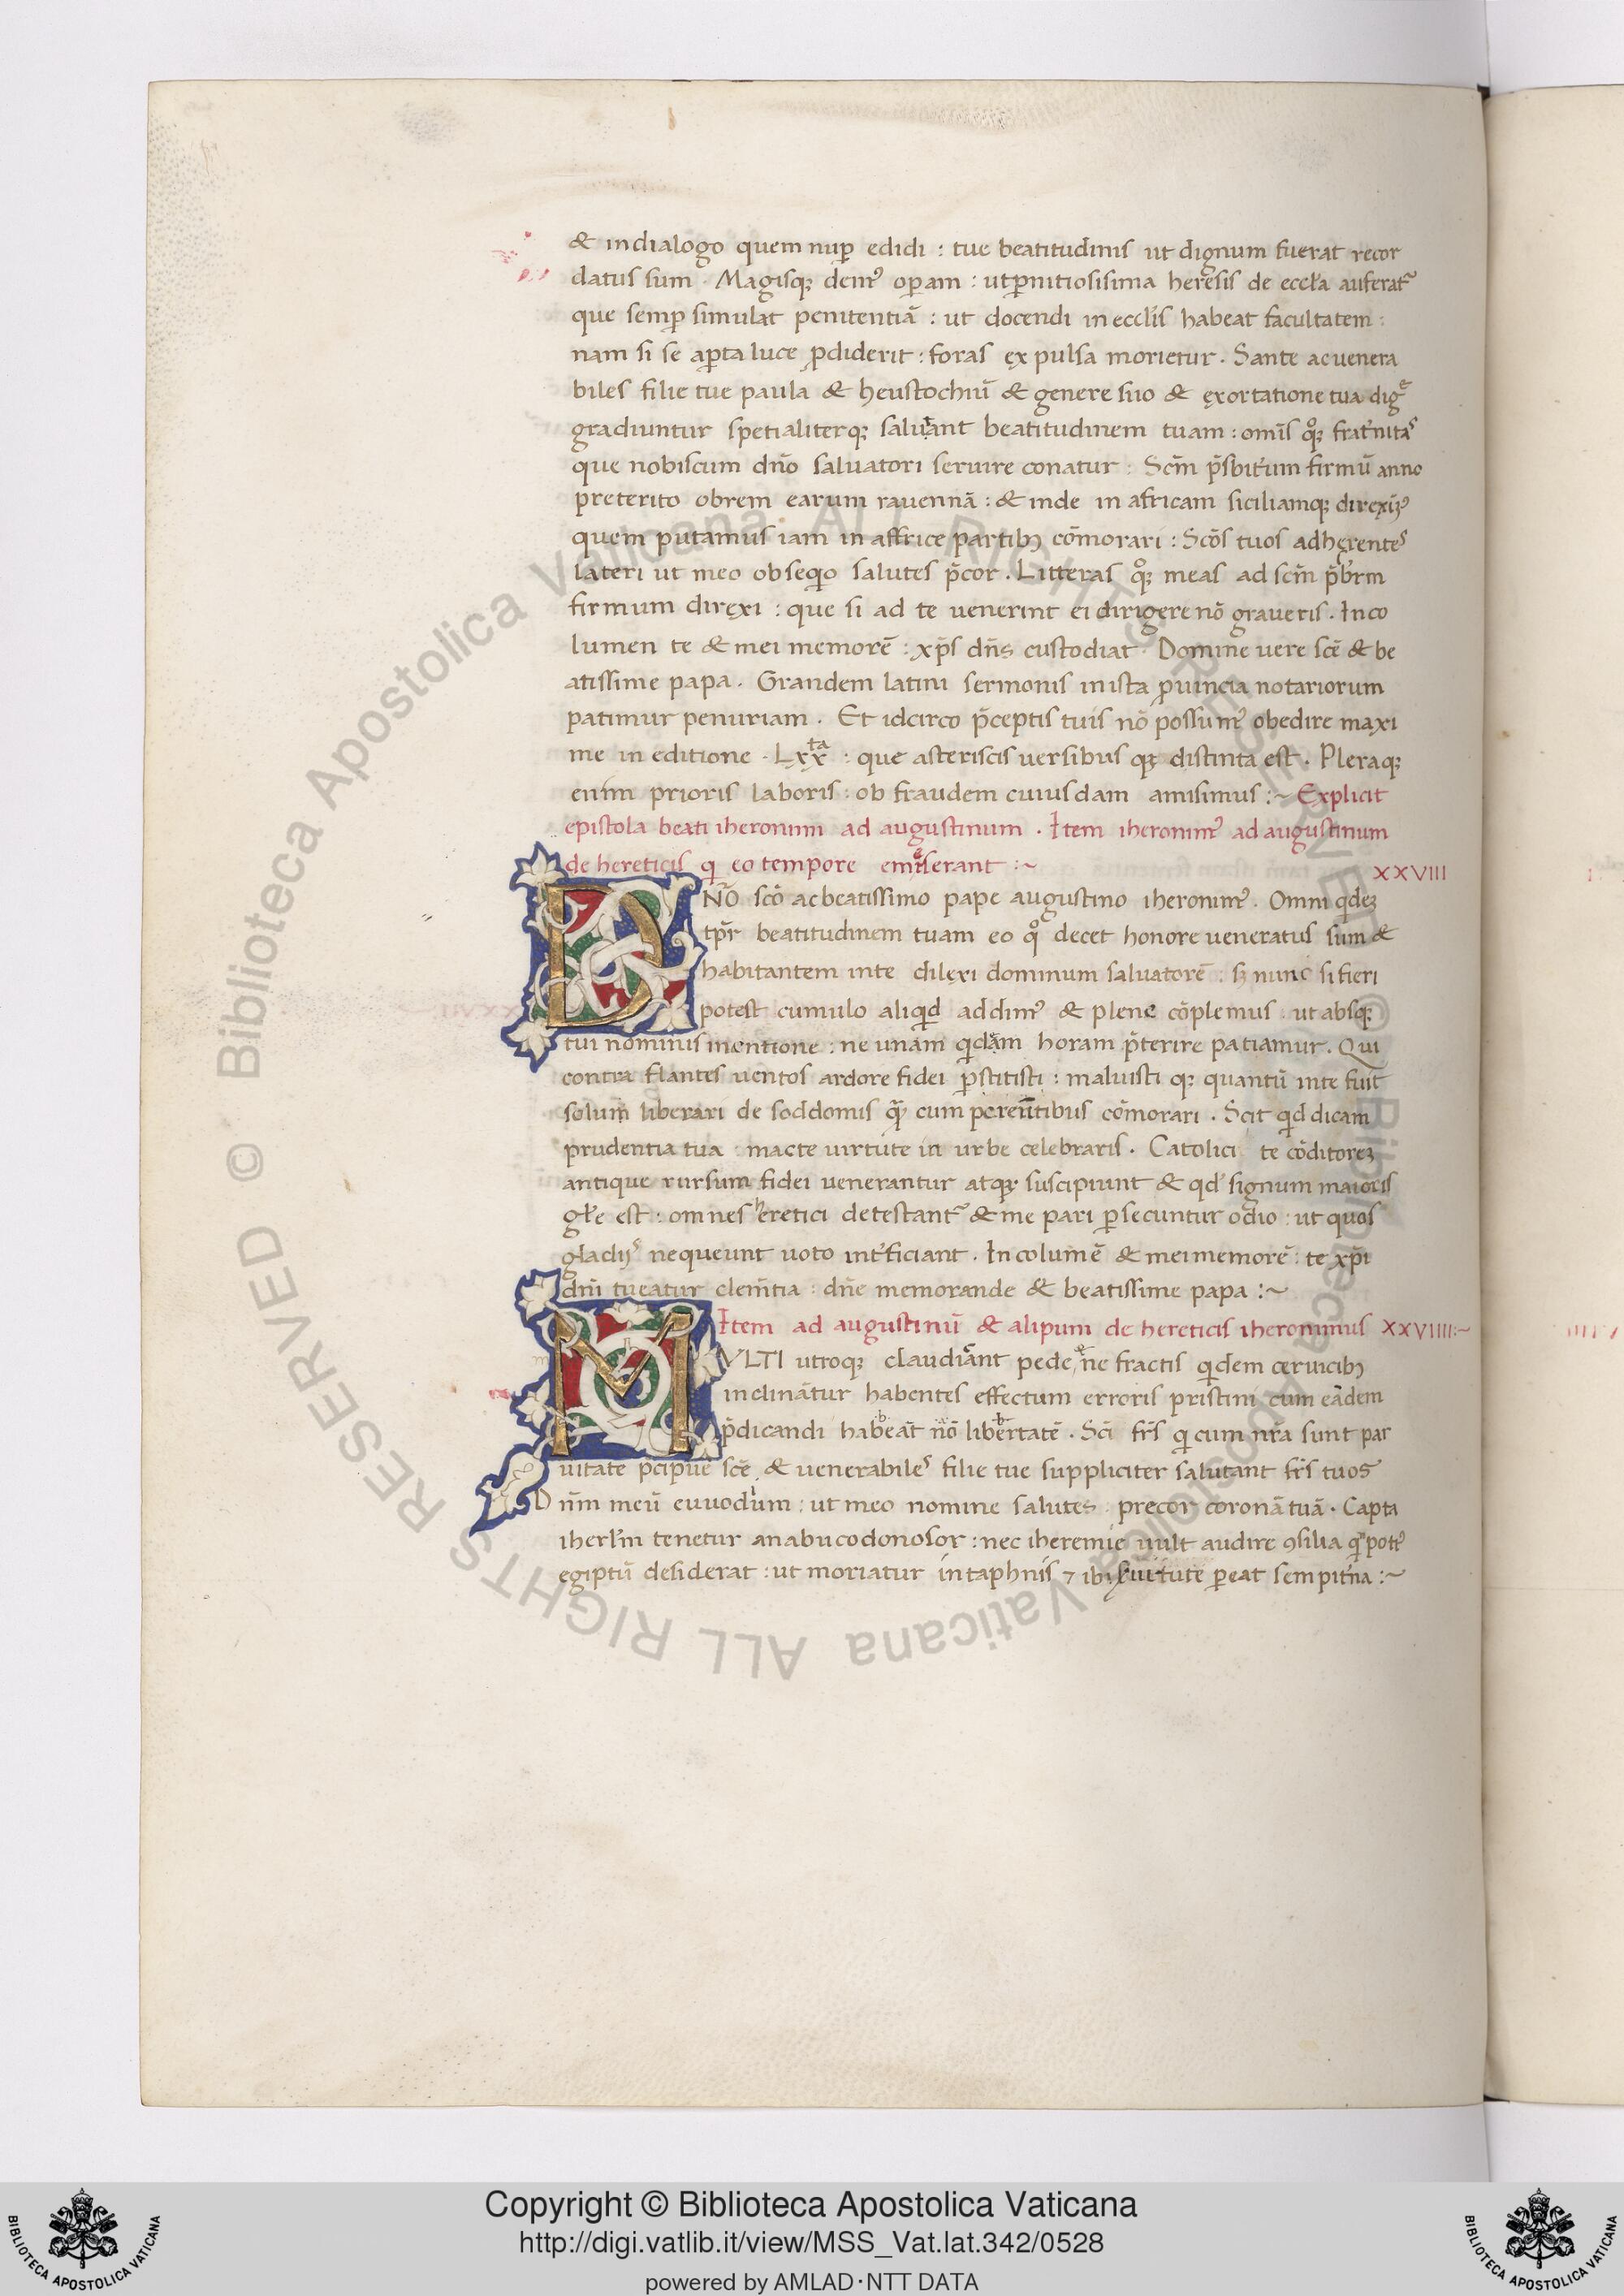 & in dialogo quem nup̱ edidi : tue beatitudinis ut dignum fuerat recor
datus sum · Magisq; dem᷒ op̱am : ut p̱nitiosisima heresis de eccl̃a auferat᷑
que semp̱ simulat penitentiā : ut docendi in eccl̃is habeat facultatem :
nam si se ap̱ta luce p̱diderit : foras ex pulsa morietur . Sante ac venera
biles filie tue paula & heustochiū & genere suo & exortatione tua digͤ
gradiuntur spetialiterq; salutant beatitudinem tuam : om̄s qͦq; frat̃nitas
que nobiscum dn̄o salvatori servire conatur : Scm̄ p̄sbit̃um firmū anno
preterito obrem earum ravennā : & inde in africam siciliamq; direxim᷒
quem putamus iam in affrice partib; cōmorari : Scōs tuos adherentes
lateri ut meo obseqio salutes p̄cor . Litteras qͦq; meas ad scm̄ p̄b̃rm
firmum direxi : que si ad te venerint ei dirigere nō graveris . Inco
lumen te & mei memorē : xp̄s dn̄s custodiat . Domine vere scē & be
atissime papa . Grandem latini sermonis in ista p̱vincia notariorum
patimur penuriam . Et idcirco p̄ceptis tuis nō possum᷒ obedire maxi
me in editione . Lxxᵗᵃ : que asteriscis versibus q; distinta est . Pleraq;
enim prioris laboris : ob fraudem cuiusdam amisimus :~ Explicit
epistola beati iheronimi ad augustinum . Item iheronim᷒ ad augustinum
de hereticis q eo tempore emͤrserant :~ XXVIII
DNO᷑ scō ac beatissimo pape augustino iheronim᷒ . Omni qdez
tp̄r beatitudinem tuam eo qͦ decet honore veneratus sum &
habitantem in te dilexi dominum salvatorē : sz nunc si fieri
potest cumulo aliqd addim᷒ & plene cōplemus . ut absq;
tui nominis mentione : ne unam qidam horam p̄terire patiamur . Qui
contra flantes ventos ardore fidei p̱stitisti : maluisti q; quantū in te fuit
solum liberari de soddomis q̃ cum pereūntibus cōmorari . Scit qd dicam
prudentia tua : macte virtute in urbe celebraris . Catolici te cōditorez
antique rursum fidei venerantur atq; suscipiunt & qd signum maioris
gl̃e est : omnes ʰeretici detestant᷑ & me pari p̱secuntur odio : ut quos
gladijs nequeunt voto int̃ficiant . In columē & mei memorē : te xp̄i
dn̄i tueatur clem̄tia : dn̄e memorande & beatissime papa :~
Item ad augustinū & alipum de hereticis iheronimus XXVIIII:~
MVLTI utroq; claudicant pede, ne fractis qidem cervicib;
inclinātur habentes effectum erroris pristini cum eādem
p̄dicandi habeāt nō libertatē . Sci fr̄s q cum nr̄a sunt par
vitate p̄cipue scē & venerabiles filie tue suppliciter salutant fr̄s tuos
Dn̄m meū euvodium : ut meo nomine salutes precor coronā tuā . Capta
iherl̃m tenetur anabucodonosor : nec iheremie vult audire ꝯsilia q potͥ᷒
egiptū desiderat : ut moriatur in taphnis ⁊ ibi servitute p̱eat sempit̃na :~
Copyright © Biblioteca Apostolica Vaticana
http://digi.vatlib.it/view/MSS_Vat.lat.342/0528
powered by AMLAD·NTT DATA
© Biblioteca Apostolica Vaticana ALL RIGHTS RESERVED
© Biblioteca Apostolica Vaticana ALL RIGHTS RESERVED
BIBLIOTECA APOSTOLICA VATICANA
BIBLIOTECA APOSTOLICA VATICANA